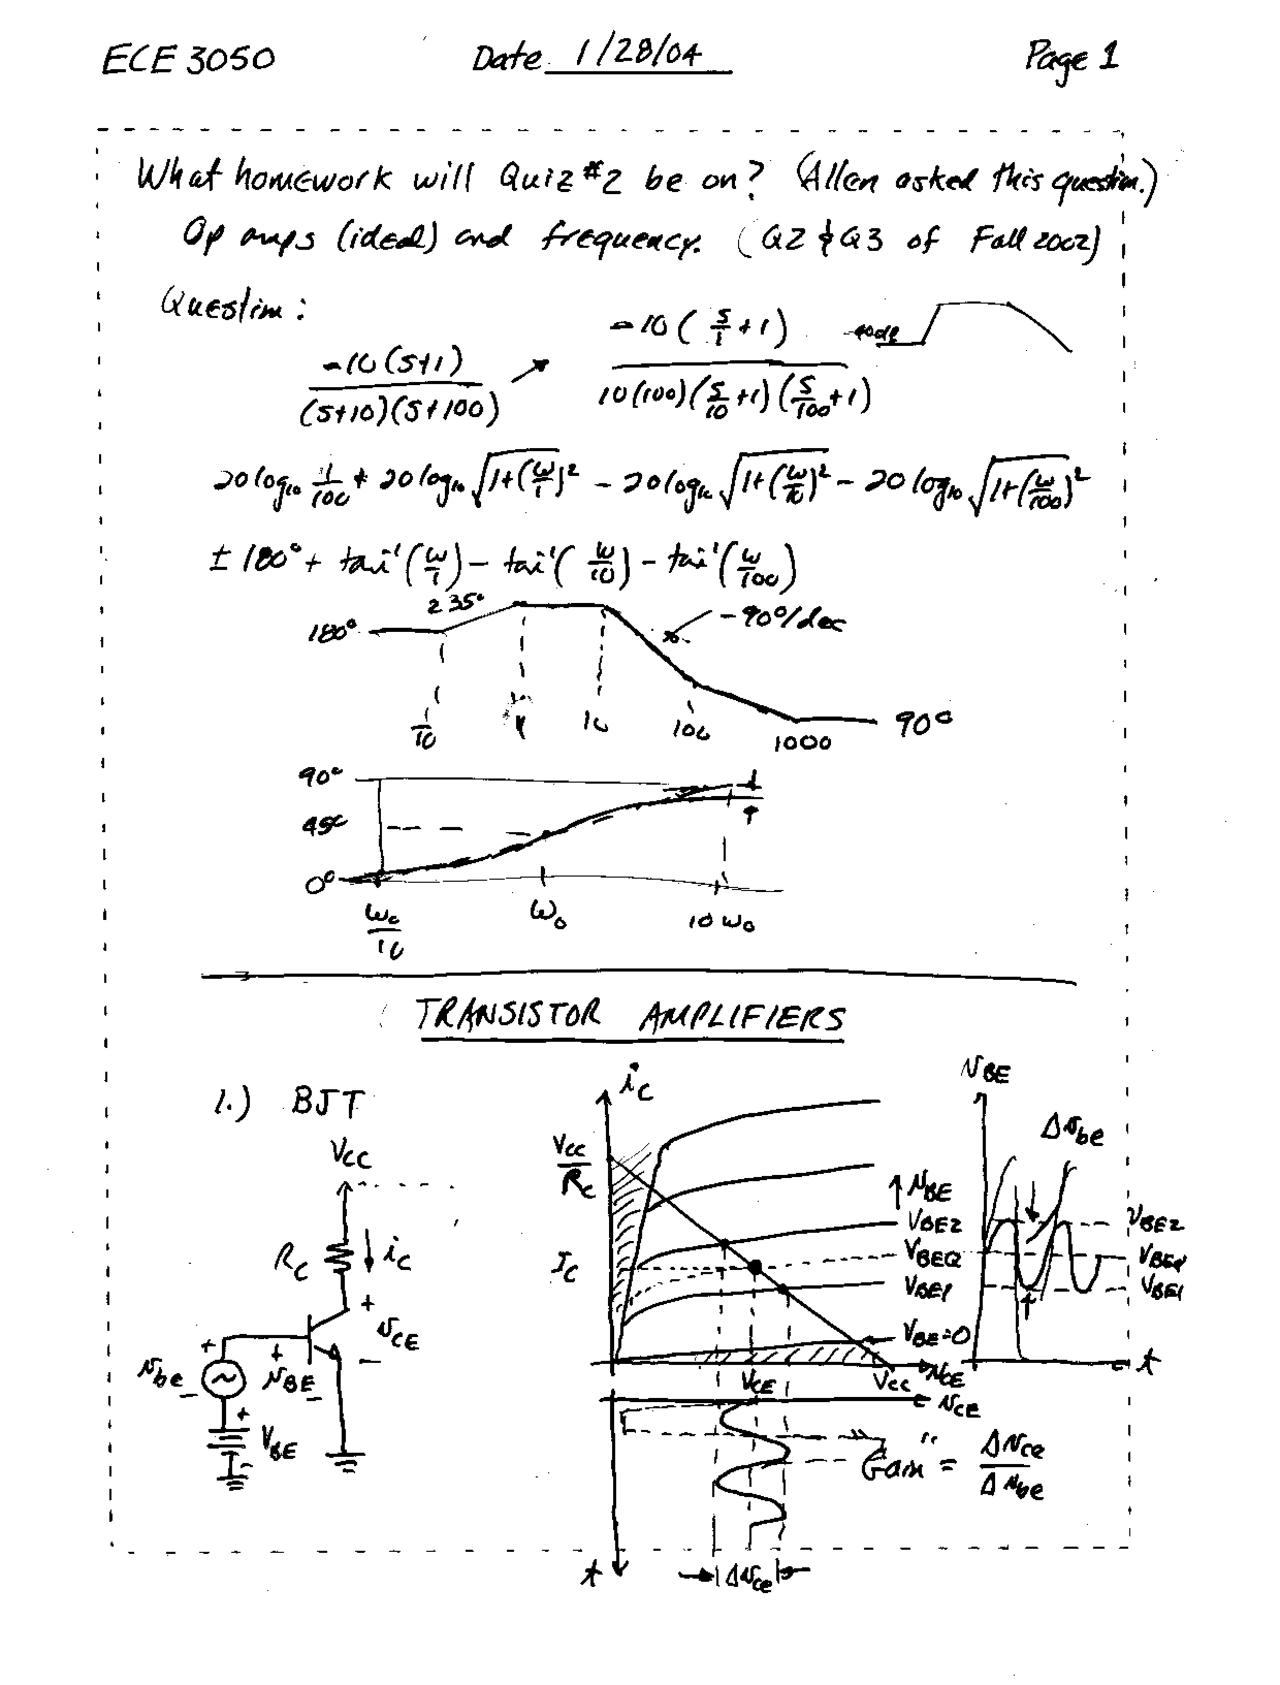 ECE 3050 Date 1/28/04 Page 1
What homework will Quiz #2 be on? (Allen asked this question.)
Op amps (ideal) and frequency. (Q2 & Q3 of Fall 2002)
Question:
-10(s+1) / (s+10)(s+100) → -10(s/1+1) / 10(100)(s/10+1)(s/100+1) -40dB
20log₁₀ 1/100 + 20log₁₀ √1+(ω/1)² - 20log₁₀ √1+(ω/10)² - 20log₁₀ √1+(ω/100)²
± 180° + tan⁻¹(ω/1) - tan⁻¹(ω/10) - tan⁻¹(ω/100)
235° -90°/dec
180°
1/10 1 10 100 1000 90°
90°
45°
0°
ω₀/10 ω₀ 10ω₀
TRANSISTOR AMPLIFIERS
1.) BJT
VCC
RC iC
+
vCE
-
+ +
vbe vBE
- -
+
VBE
-
iC
VCC/RC
↑ vBE
VBE2
IC VBEQ
VBE1
VBE=0
VCE VCC vCE
vCE
"Gain" = Δvce / Δvbe
t Δvce
vBE
Δvbe
VBE2
VBEQ
VBE1
t